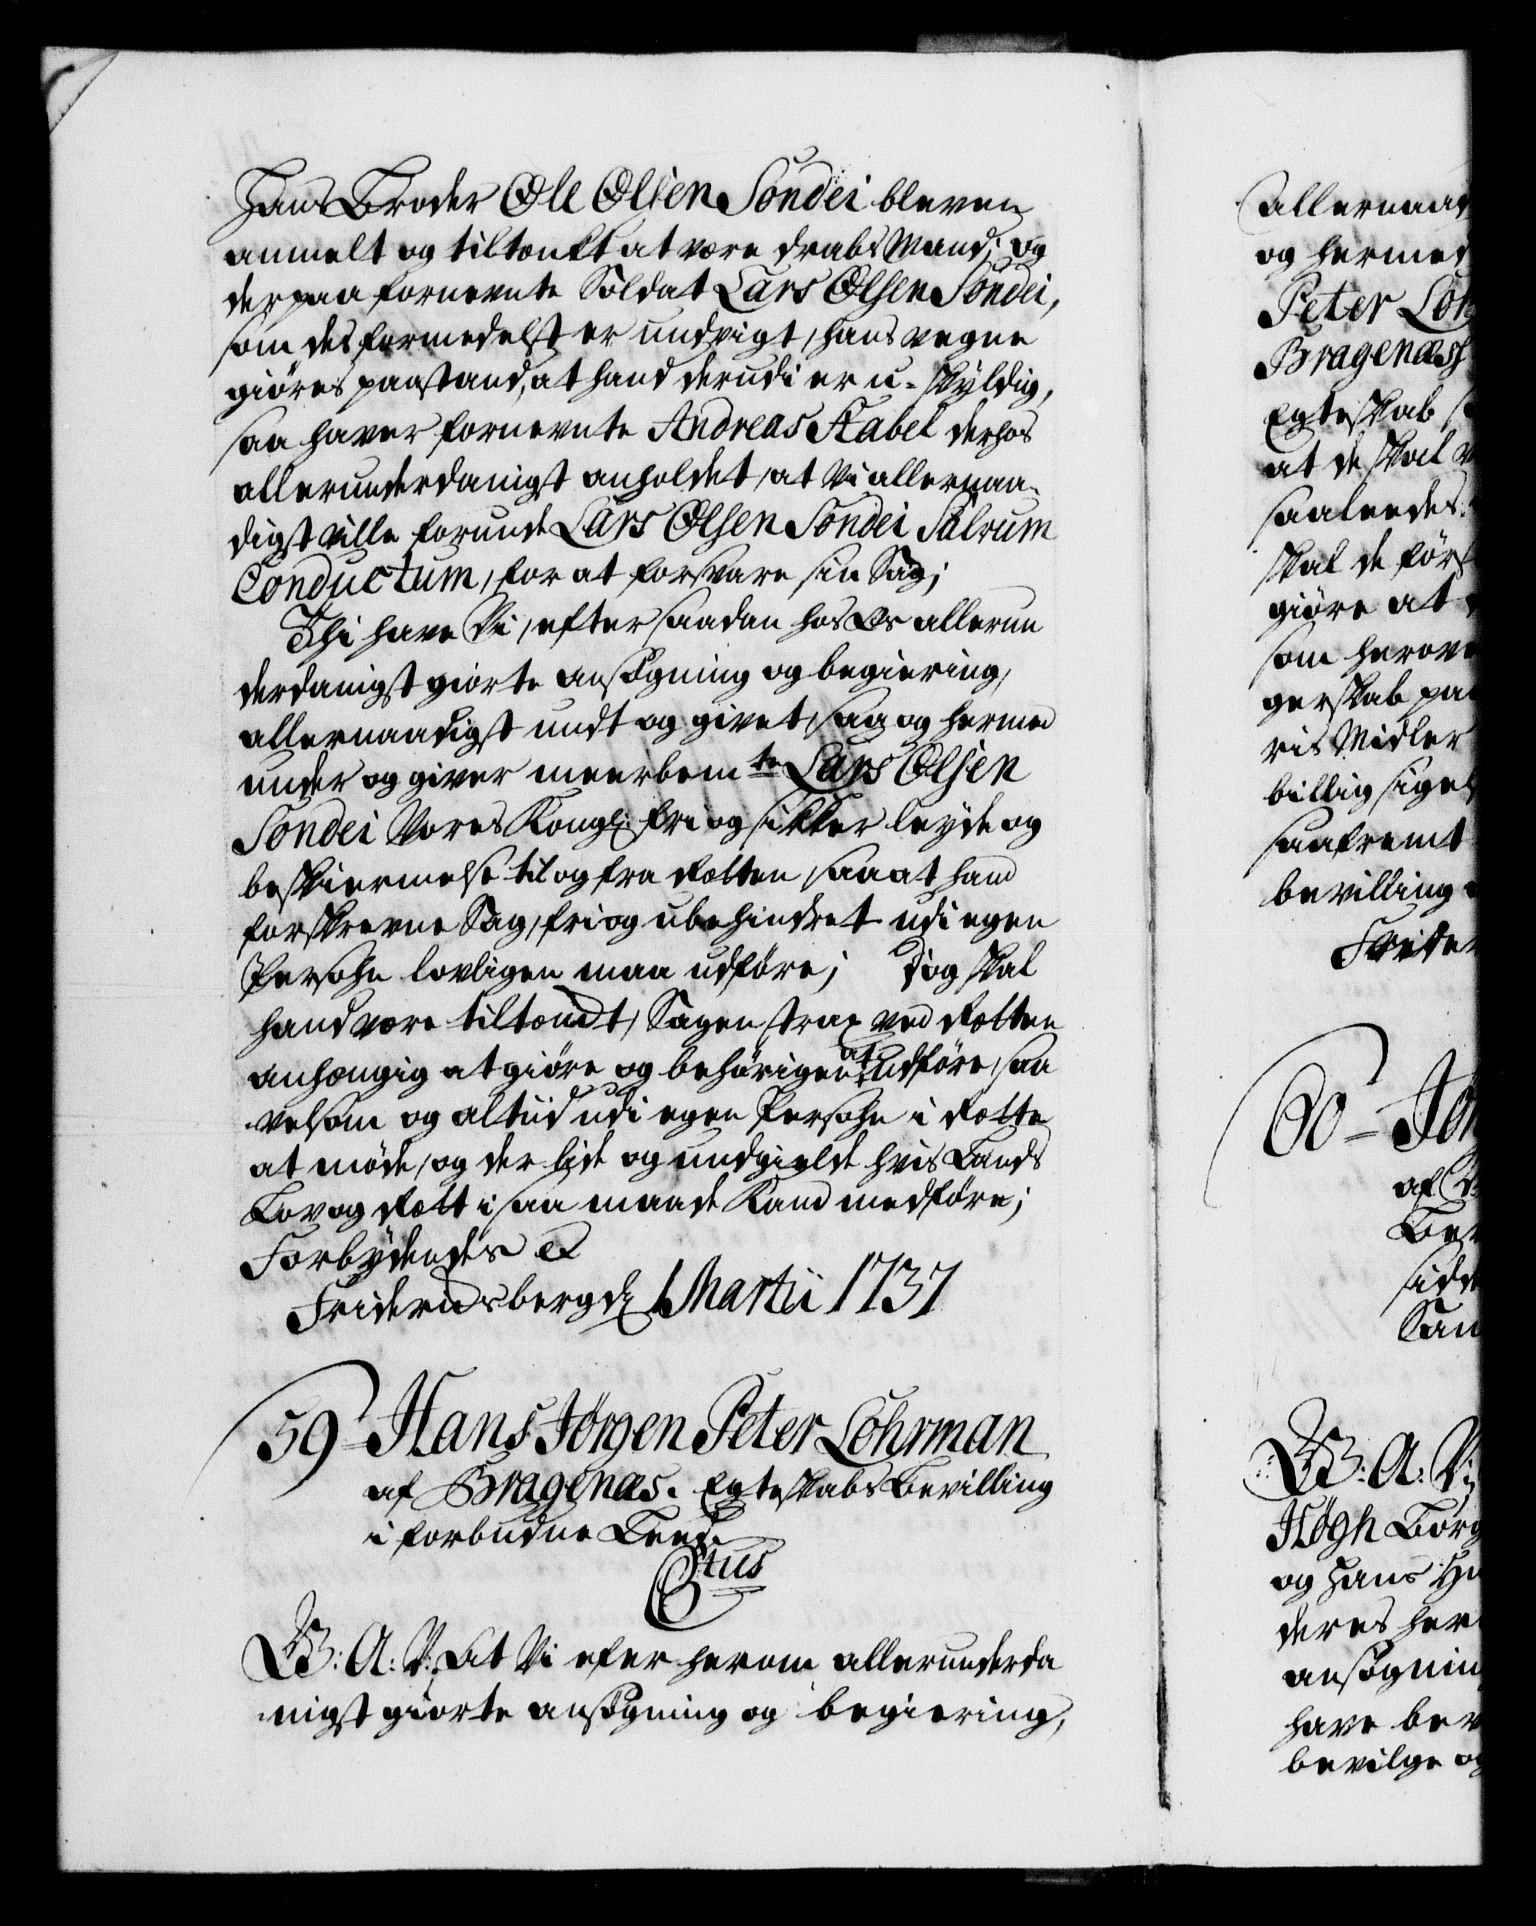 Hans Broder Ole Olsen Sondei bleven
anmelt og tiltænkt at være drabs Mand; og
derpaa fornevnte Soldat Lars Olsen Sondei,
som des formedelst er undvigt, hans vegne
giøres paastand, at hand derudi er u-skyldig,
saa haver fornevnte Andreas Kabel derhos
allerunderdanigst anholdet, at Vi allernaa-
digst ville forunde Lars Olsen Sondei Salvum
Conductum, for at forsvare sin Sag;
Thi have Vi, efter saadan hos Os allerun
derdanigst giorte ansøgning og begiering,
allernaadigst undt og givet, saa og hermed
under og giver meerbemte Lars Olsen
Sondei Vores Kongl: fri og sikker leyde og
beskiermelse til og fra Rætten, saa at hand
forskrevne Sag, fri og ubehindret udi egen
Persohn lovligen maa udføre; Dog skal
hand være tiltænckt, Sagen strax ved Rætten
anhængig at giøre og behørigen at udføre, saa
velsom og altiid udi egen Persohn i Rætte
at møde, og der lide og undgielde hvis Lands
Lov og Rætt i saa maade Kand medføre;
Forbydendes &
Friderichsberg d: 1 Martii 1737
59 Hans Jørgen Peter Lohrman
af Bragenæs. Egteskabs Bevilling
i forbudne Leed.
Gtus
G: A: V: At Vi efter herom allerunderda
nigst giorte ansøgning og begiering,
allernaad
og hermed
Peter Loh
Bragenæs
Egteskab
at de skal
saaledes
skal de før
giøre at
som herov
gerskab paa
ris Midler
billig sigel
saafremt
bevilling
Frider
60 Joh
af
Bev
sidd
San
G: A: V:
Høgh Borg
og Hans Hu
deres her
ansøgning
have bev
bevilge og